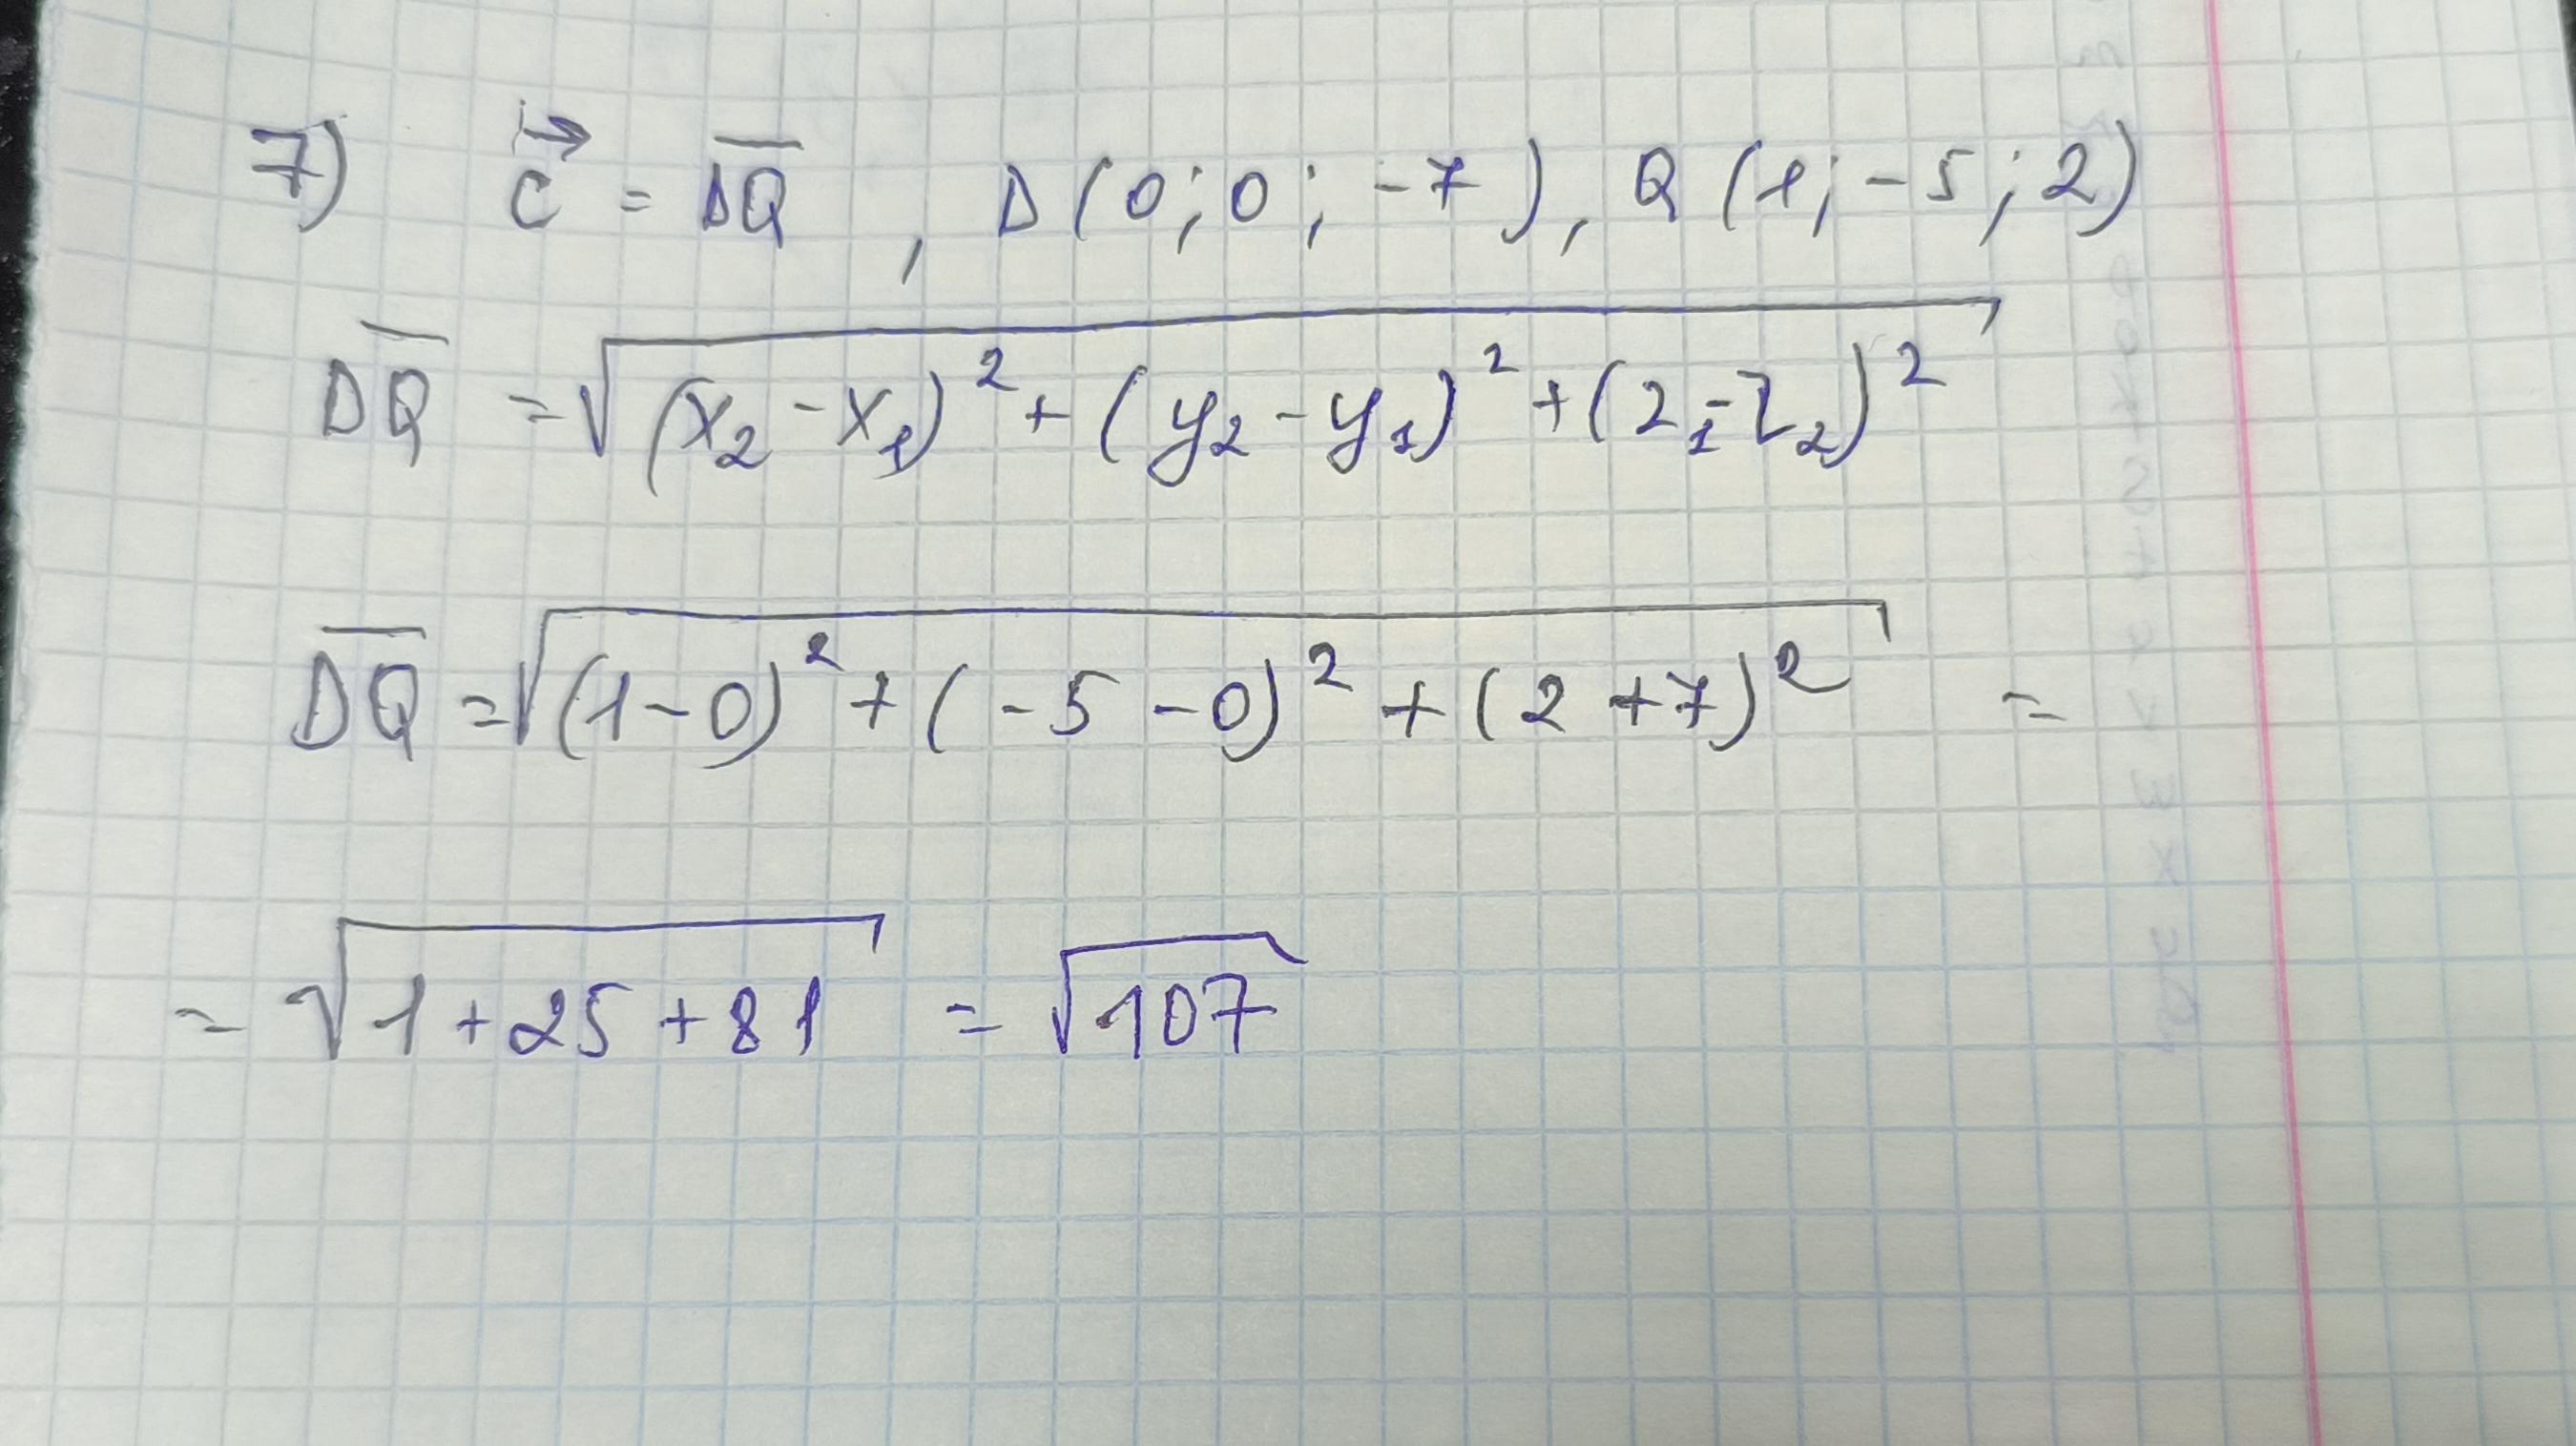 7) c⃗ = D̅Q̅ , D(0;0;-7), Q(1;-5;2)
D̅Q̅ = √((x₂-x₁)² + (y₂-y₁)² + (z₁-z₂)²)
D̅Q̅ = √((1-0)² + (-5-0)² + (2+7)²) =
= √(1+25+81) = √107